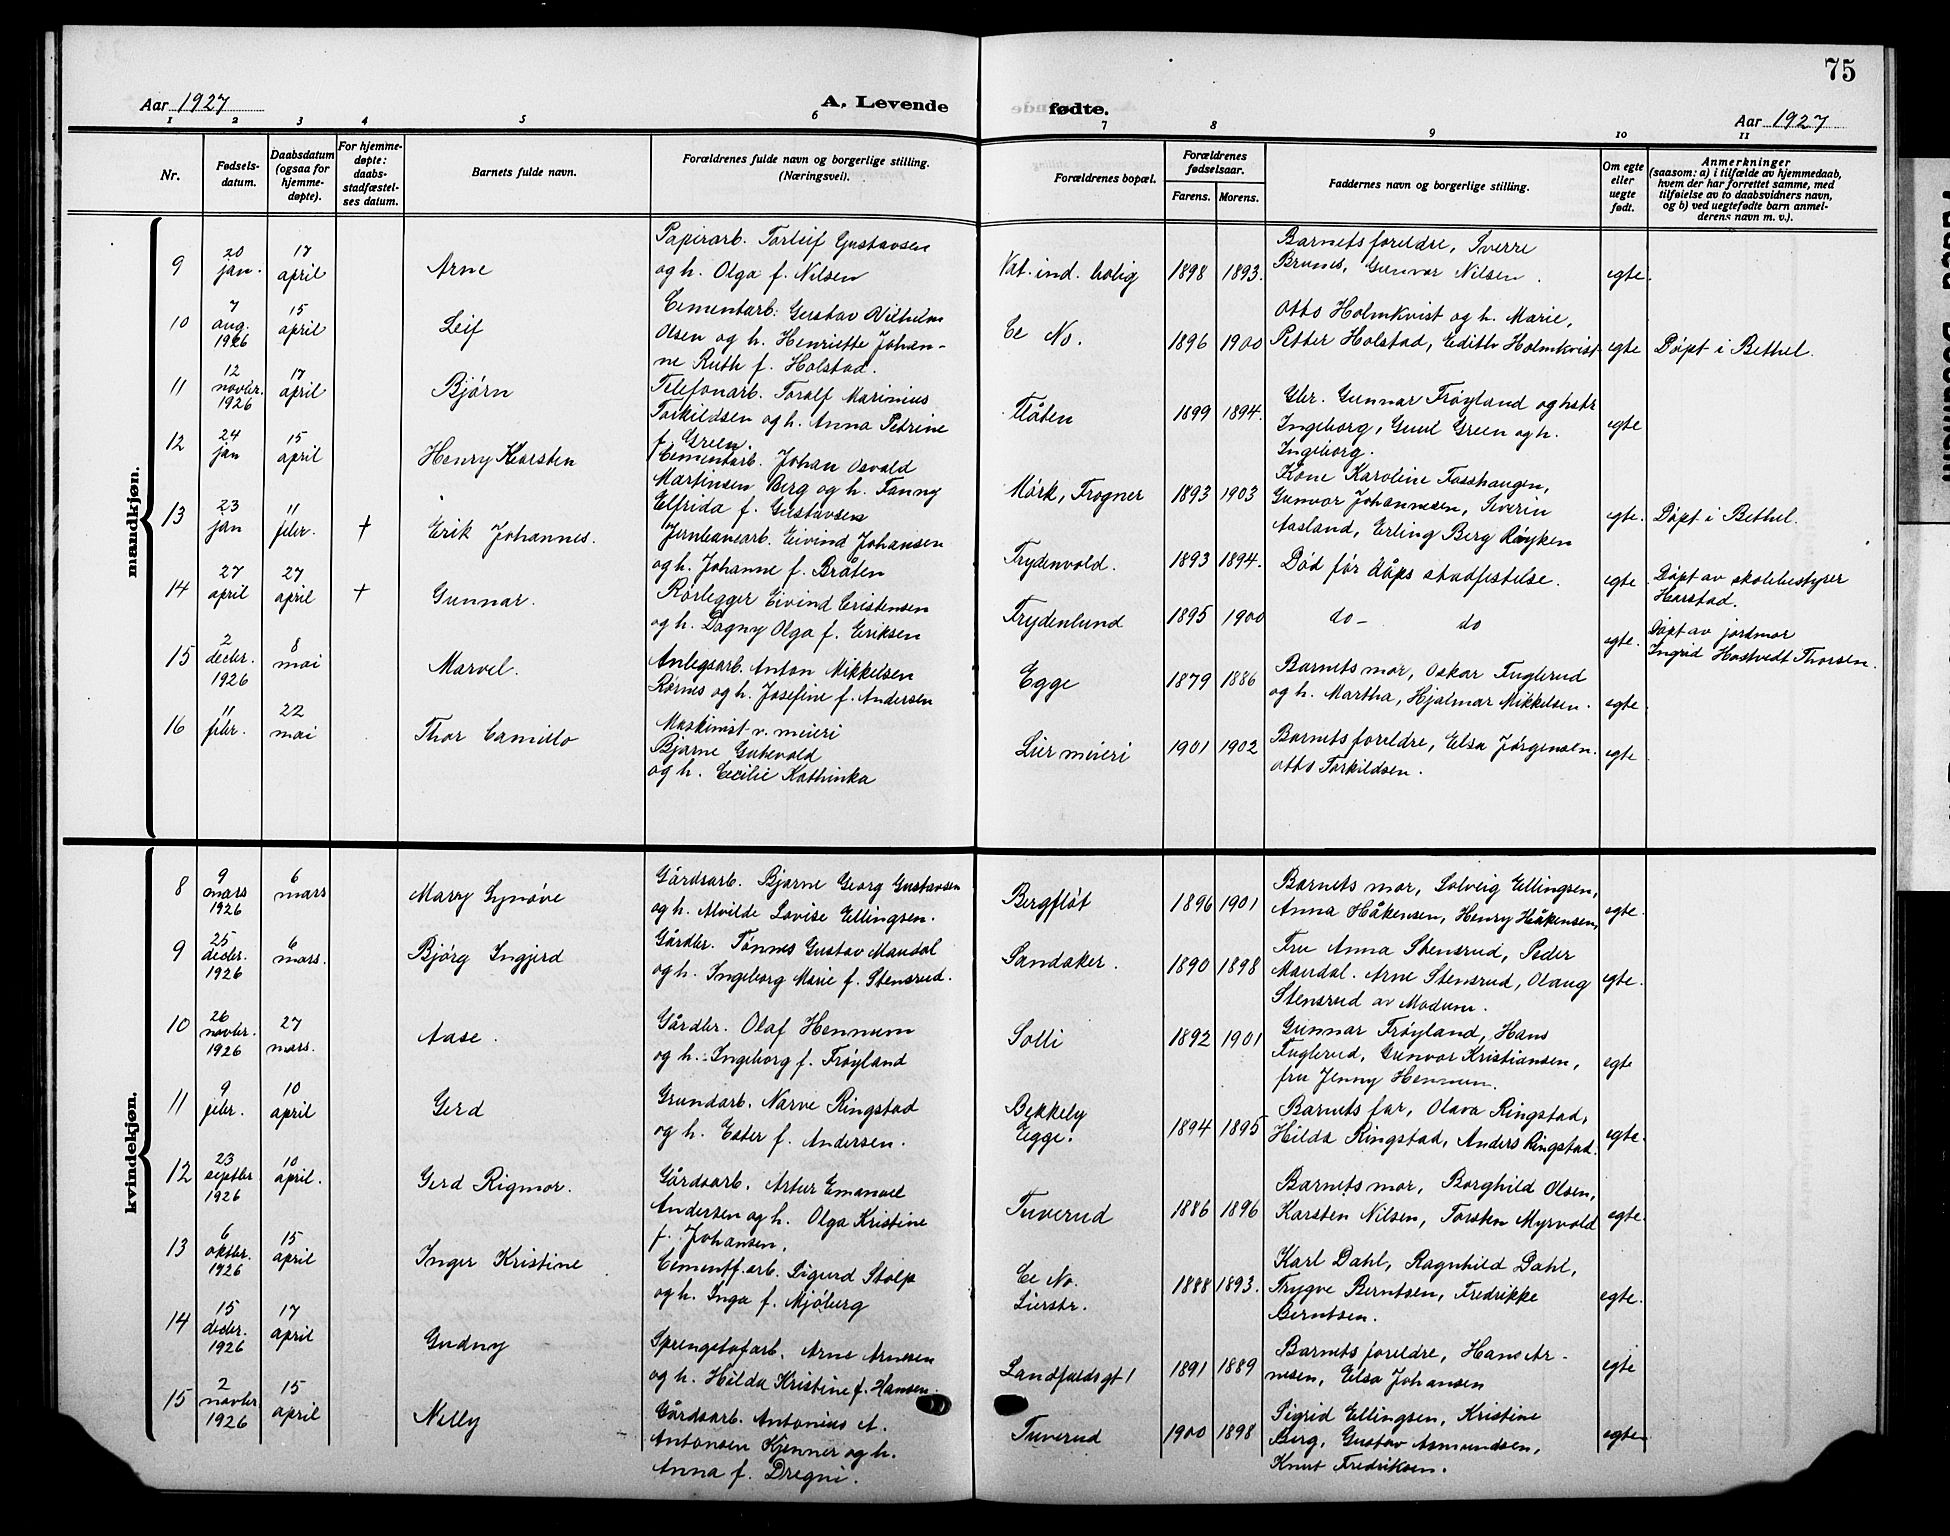 75
Aar 1927
A. Levende
fødte.
Aar 1927
1 2 3 4 5 6 7 8 9 10 11
Nr.
Fødsels-
datum.
Daabsdatum
(ogsaa for
hjemme-
døpte).
For hjemme-
døpte:
daabs-
stadfæstel-
ses datum.
Barnets fulde navn.
Forældrenes fulde navn og borgerlige stilling.
(Næringsvei).
Forældrenes bopæl.
Forældrenes
fødselsaar.
Farens. Morens.
Faddernes navn og borgerlige stilling.
Om egte
eller
uegte
født.
Anmerkninger
(saasom: a) i tilfælde av hjemmedaab,
hvem der har forrettet samme, med
tilføielse av to daabsvidners navn,
og b) ved uegtefødte barn anmel-
derens navn m. v.).
mandkjøn.
9
20
jan.
17
april
Arne
Papirarb. Torleif Gustavsen
og h. Olga f. Nilsen
Vat. ind. bolig
1898 1893.
Barnets foreldre, Sverre
Brunes, Gunvor Nilsen.
egte.
10
7
aug.
1926
15
april
Leif
Cementarb. Gustav Vilhelm
Olsen og h. Henriette Johan-
ne Ruth f. Holstad.
Ce No.
1896 1900
Otto Holmkvist og h. Marie,
Petter Holstad, Edith Holmkvist
egte
Døpt i Bethel.
11
12
novbr.
1926
17
april
Bjørn
Telefonarb. Toralf Marinius
Torkildsen og h. Anna Petrine
f. Green.
Flåten
1899 1894.
Gbr. Gunnar Frøyland og hstr
Ingeborg, Gunl Green og h.
Ingeborg.
egte
12
24
jan
15
april
Henry Karsten
Cementarb. Johan Osvald
Martinsen Berg og h. Fanny
Elfrida f. Gustavsen
Mørk, Frogner
1893 1903
Kone Karoline Fosshaugen,
Gunvor Johannesen, Severin
Aasland, Erling Berg Røyken
egte.
Døpt i Bethel.
13
23
jan
11
febr.
+
Erik Johannes.
Jernbanearb. Eivind Johansen
og h. Johanne f. Bråten
Frydenvold.
1893 1894.
Død før dåps stadfestelse.
egte
Døpt av skolebestyrer
Harstad.
14
27
april
27
april
+
Gunnar.
Rørlegger Eivind Cristensen
og h. Dagny Olga f. Eriksen
Frydenlund
1895 1900
do- do
egte.
Døpt av jordmor
Ingrid Hostvedt Thorsen.
15
2
decbr.
1926
8
mai
Marvel.
Anlegsarb. Anton Mikkelsen
Rørnes og h. Josefine f. Andersen
Egge
1879 1886
Barnets mor, Oskar Fuglerud
og h. Martha, Hjalmar Mikkelsen.
egte.
16
11
febr.
22
mai
Thor Camillo
Maskinist v. meieri
Bjarne Gutevold
og h. Cecilie Kathinka
Lier meieri
1901 1902
Barnets foreldre, Elsa Jørgensen.
Otto Torkildsen.
egte
kvindekjøn.
8
9
mars
1926
6
mars
Marry Synøve
Gårdsarb. Bjarne Georg Gustavsen
og h. Alvilde Lovise Ellingsen.
Bergfløt
1896 1901
Barnets mor, Solveig Ellingsen,
Anna Håkensen, Henry Håkensen,
egte.
9
25
decbr.
1926
6
mars.
Bjørg Ingjerd
Gårdbr. Tønnes Gustav Mandal
og h. Ingeborg Marie f. Stensrud.
Sandaker.
1890 1898
Fru Anna Stensrud, Peder
Mandal. Arne Stensrud, Olaug
Stensrud av Modum.
egte.
10
26
novbr.
1926
27
mars.
Aase.
Gårdbr. Olaf Hennum
og h. Ingeborg f. Frøyland
Solli
1892 1901
Gunnar Frøyland, Hans
Fuglerud, Gunvor Kristiansen,
fru Jenny Hennum.
egte
11
9
febr.
10
april
Gerd
Grundarb. Narve Ringstad
og h. Ester f. Andersen.
Bekkely
Egge.
1894 1895
Barnets far, Olava Ringstad,
Hilda Ringstad, Anders Ringstad.
egte.
12
23
septbr.
1926
10
april.
Gerd Rigmor.
Gårdsarb. Artur Emanuel
Andersen og h. Olga Kristine
f. Johansen.
Tuverud
1886 1896
Barnets mor, Borghild Olsen,
Karsten Nilsen, Torsten Myrvold
egte.
13
6
oktbr.
1926
15
april
Inger Kristine
Cementf.arb. Sigurd Stolp
og h. Inga f. Mjøberg
Ce No.
Lierstr.
1888 1893.
Karl Dahl, Ragnhild Dahl,
Trygve Berntsen, Fredrikke
Berntsen.
egte.
14
15
decbr.
1926
17
april
Gudny
Sprengstofarb. Arne Arnesen
og h. Hilda Kristine f. Hansen.
Landfaldsgt 1
1891 1889
Barnets foreldre, Hans Ar-
nesen, Elsa Johansen
egte
15
2
novbr
1926
15
april
Nelly
Gårdsarb. Antonius A.
Antonsen Kjenner og h.
Anna f. Dregni.
Tuverud
1900 1898
Sigrid Ellingsen, Kristine
Berg, Gustav Asmundsen,
Knut Fredriksen.
egte